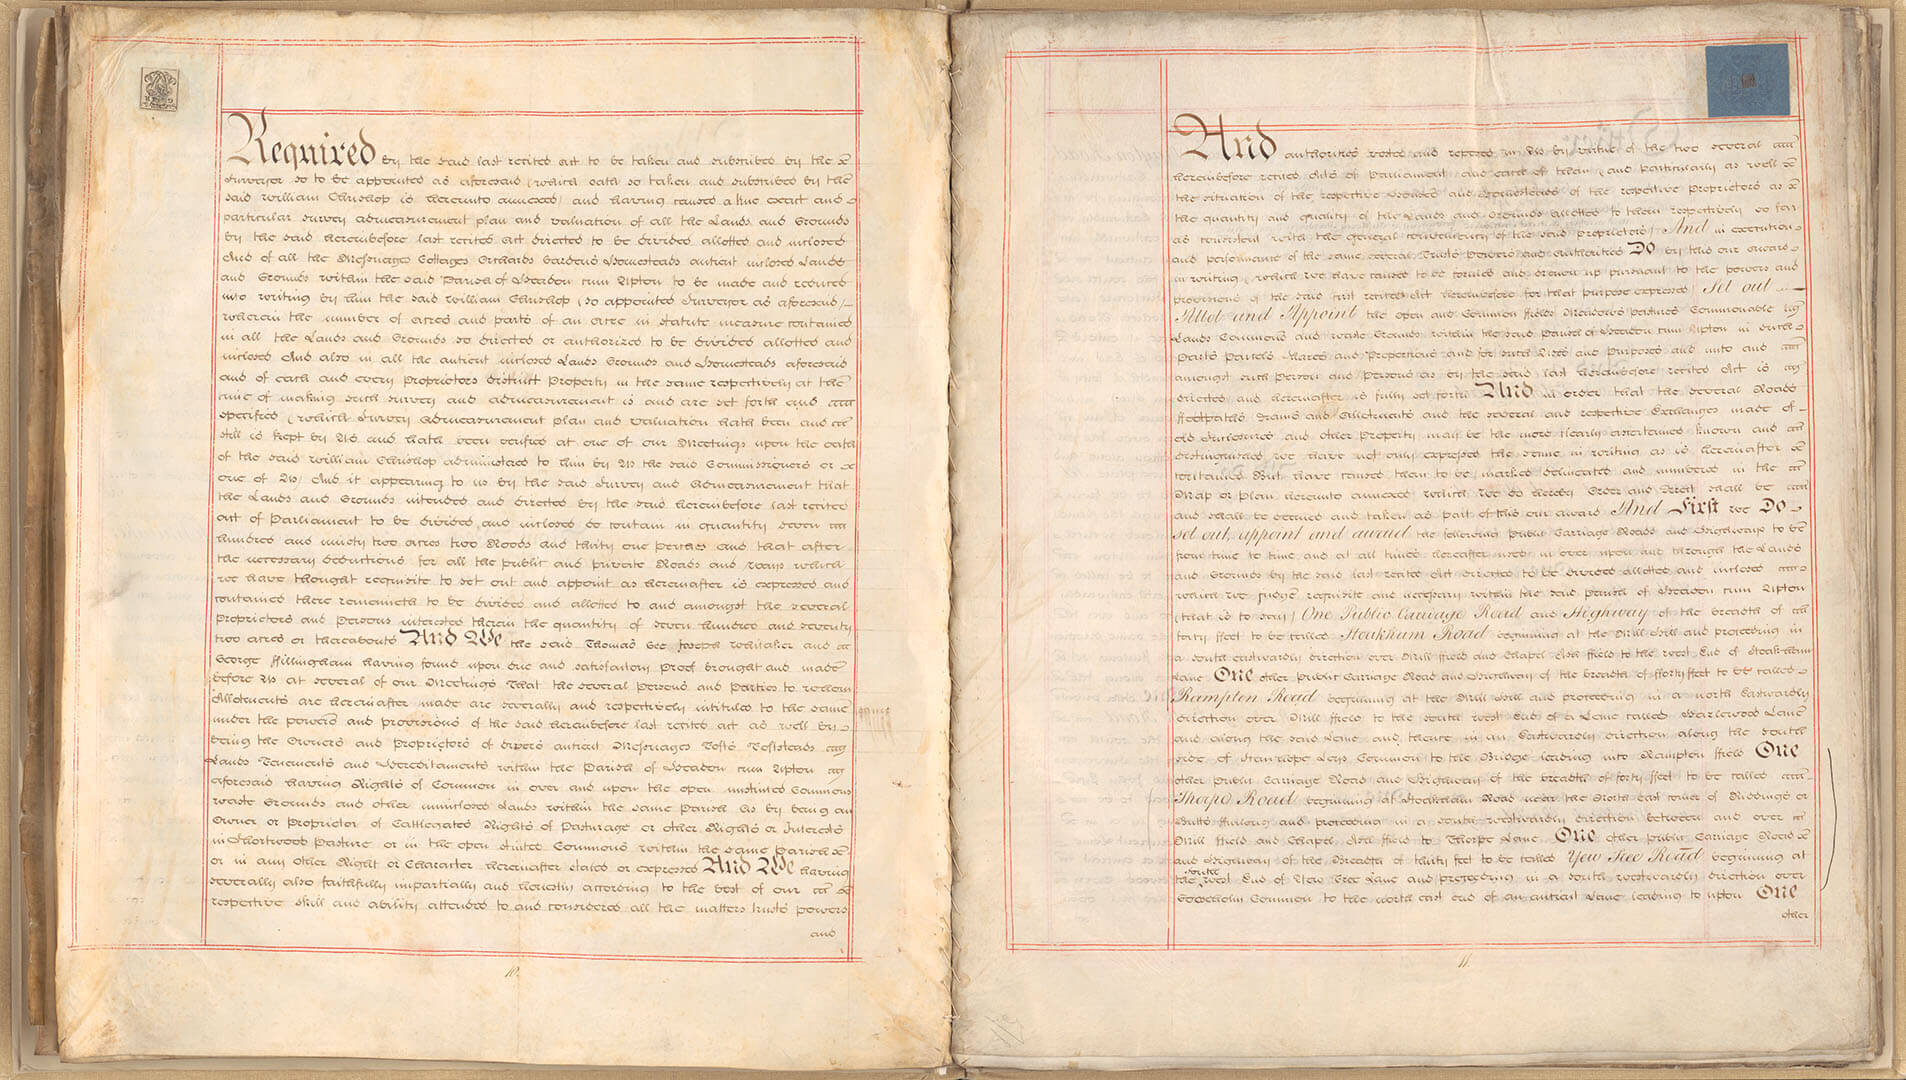 Required by the said last recited Act to be taken and subscribed by the
Surveyor so to be appointed as aforesaid (which oath so taken and subscribed by the
said William Chrishop is hereunto annexed) and having caused a true exact and
particular survey admeasurement plan and valuation of all the Lands and Grounds
by the said hereinbefore last recited Act directed to be divided allotted and inclosed
And of all the Messuages Cottages Orchards Gardens Homesteads antient inclosed Lands
and Grounds within the said Parish of Headon cum Upton to be made and reduced
into writing by him the said William Chrishop (so appointed Surveyor as aforesaid)
wherein the number of acres and parts of an acre in statute measure contained
in all the Lands and Grounds so directed or authorized to be divided allotted and
inclosed And also in all the antient inclosed Lands Grounds and Homesteads aforesaid
and of each and every Proprietors distinct Property in the same respectively at the
time of making such survey and admeasurement is and are set forth and
specified (which Survey Admeasurement plan and valuation hath been and
still is kept by Us and hath been verified at one of our Meetings upon the oath
of the said William Chrishop administered to him by Us the said Commissioners or
one of Us) And it appearing to us by the said Survey and Admeasurement that
the Lands and Grounds intended and directed by the said hereinbefore last recited
act of Parliament to be divided and inclosed do contain in quantity seven
hundred and ninety two acres two Roods and thirty one perches and that after
the necessary deductions for all the public and private Roads and ways which
we have thought requisite to set out and appoint as hereinafter is expressed and
contained there remaineth to be divided and allotted to and amongst the several
proprietors and Persons interested therein the quantity of seven hundred and seventy
two acres or thereabouts And We the said Thomas Gee Joseph Whitaker and
George Fillingham having found upon due and satisfactory Proof brought and made
before Us at several of our Meetings That the several Persons and Parties to whom
Allotments are hereinafter made are severally and respectively intitled to the same
under the powers and provisions of the said hereinbefore last recited act as well by
being the Owners and Proprietors of divers antient Messuages Tofts Toftsteads
Lands Tenements and Hereditaments within the Parish of Headon cum Upton
aforesaid having Rights of Common in over and upon the open unstinted Commons
waste Grounds and other uninclosed Lands within the same Parish As by being an
Owner or Proprietor of Cattlegates Rights of Pasturage or other Rights or Interests
in Shortwood Pasture or in the open stinted Commons within the same parish
or in any other Right or Character hereinafter stated or expressed And We having
severally also faithfully impartially and honestly according to the best of our
respective skill and ability attended to and considered all the matters trusts powers
and
10.
And authorities vested and reposed in Us by virtue of the two several
hereinbefore recited Acts of Parliament and each of them (and particularly as well
the situation of the respective Houses and Homesteads of the respective proprietors as
the quantity and quality of the Lands and Grounds allotted to them respectively so far
as consistent with the general conveniency of the said proprietors) And in execution
and performance of the same several Trusts Powers and authorities Do by this our award
in writing (which we have caused to be formed and drawn up pursuant to the powers and
provisions of the said first recited Act hereinbefore for that purpose expressed) Set out
Allot and Appoint the open and Common Fields Meadows Pastures Commonable
Lands Commons and waste Grounds within the said Parish of Headon cum Upton in such
Parts Parcels Shares and Proportions and for such Uses and Purposes and unto and
amongst such Person and Persons as by the said last hereinbefore recited Act is
directed and hereinafter is fully set forth And in order that the several Roads
Footpaths Drains and Allotments and the several and respective Exchanges made of
old Inclosures and other Property may be the more clearly ascertained known and
distinguished we have not only expressed the same in writing as is hereinafter
contained But have caused them to be marked delineated and numbered in the
Map or plan hereunto annexed which we do hereby Order and direct shall be
and shall be deemed and taken as part of this our award And First we Do
set out, appoint and award the following public Carriage Roads and Highways to be
from time to time and at all times hereafter used in over upon and through the Lands
and Grounds by the said last recited Act directed to be divided allotted and inclosed
which we judge requisite and necessary within the said parish of Headon cum Upton
(that is to say) One Public Carriage Road and Highway of the breadth of
forty Feet to be called Stoakham Road beginning at the Mill Hill and proceeding in
a south eastwardly direction over Mill Field and Chapel Ash Field to the west End of Stoakham
Lane One other Public Carriage Road and Highway of the breadth of forty feet to be called
Rampton Road beginning at the Mill Hill and proceeding in a north Eastwardly
direction over Mill Field to the south west End of a Lane called Hazlewood Lane
and along the said Lane and thence in an Eastwardly direction along the south
side of Leys Common to the Bridge leading into Rampton Field One
other public Carriage Road and Highway of the breadth of forty Feet to be called
Thorpe Road beginning at Stoakham Road near the North east corner of Riddings or
Butts Furlong and proceeding in a south westwardly direction between and over
Mill Field and Chapel Ash Field to Thorpe Lane One other public Carriage Road
and Highway of the Breadth of thirty feet to be called Yew Tree Road beginning at
the south west End of Yew Tree Lane and proceeding in a south westwardly direction over
Common to the north east end of an antient Lane leading to upton One
other
11.